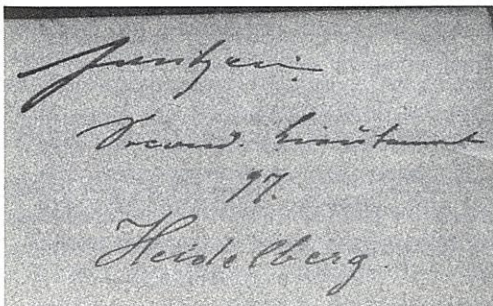 Second. Lieutenant
97.
Heidelberg.